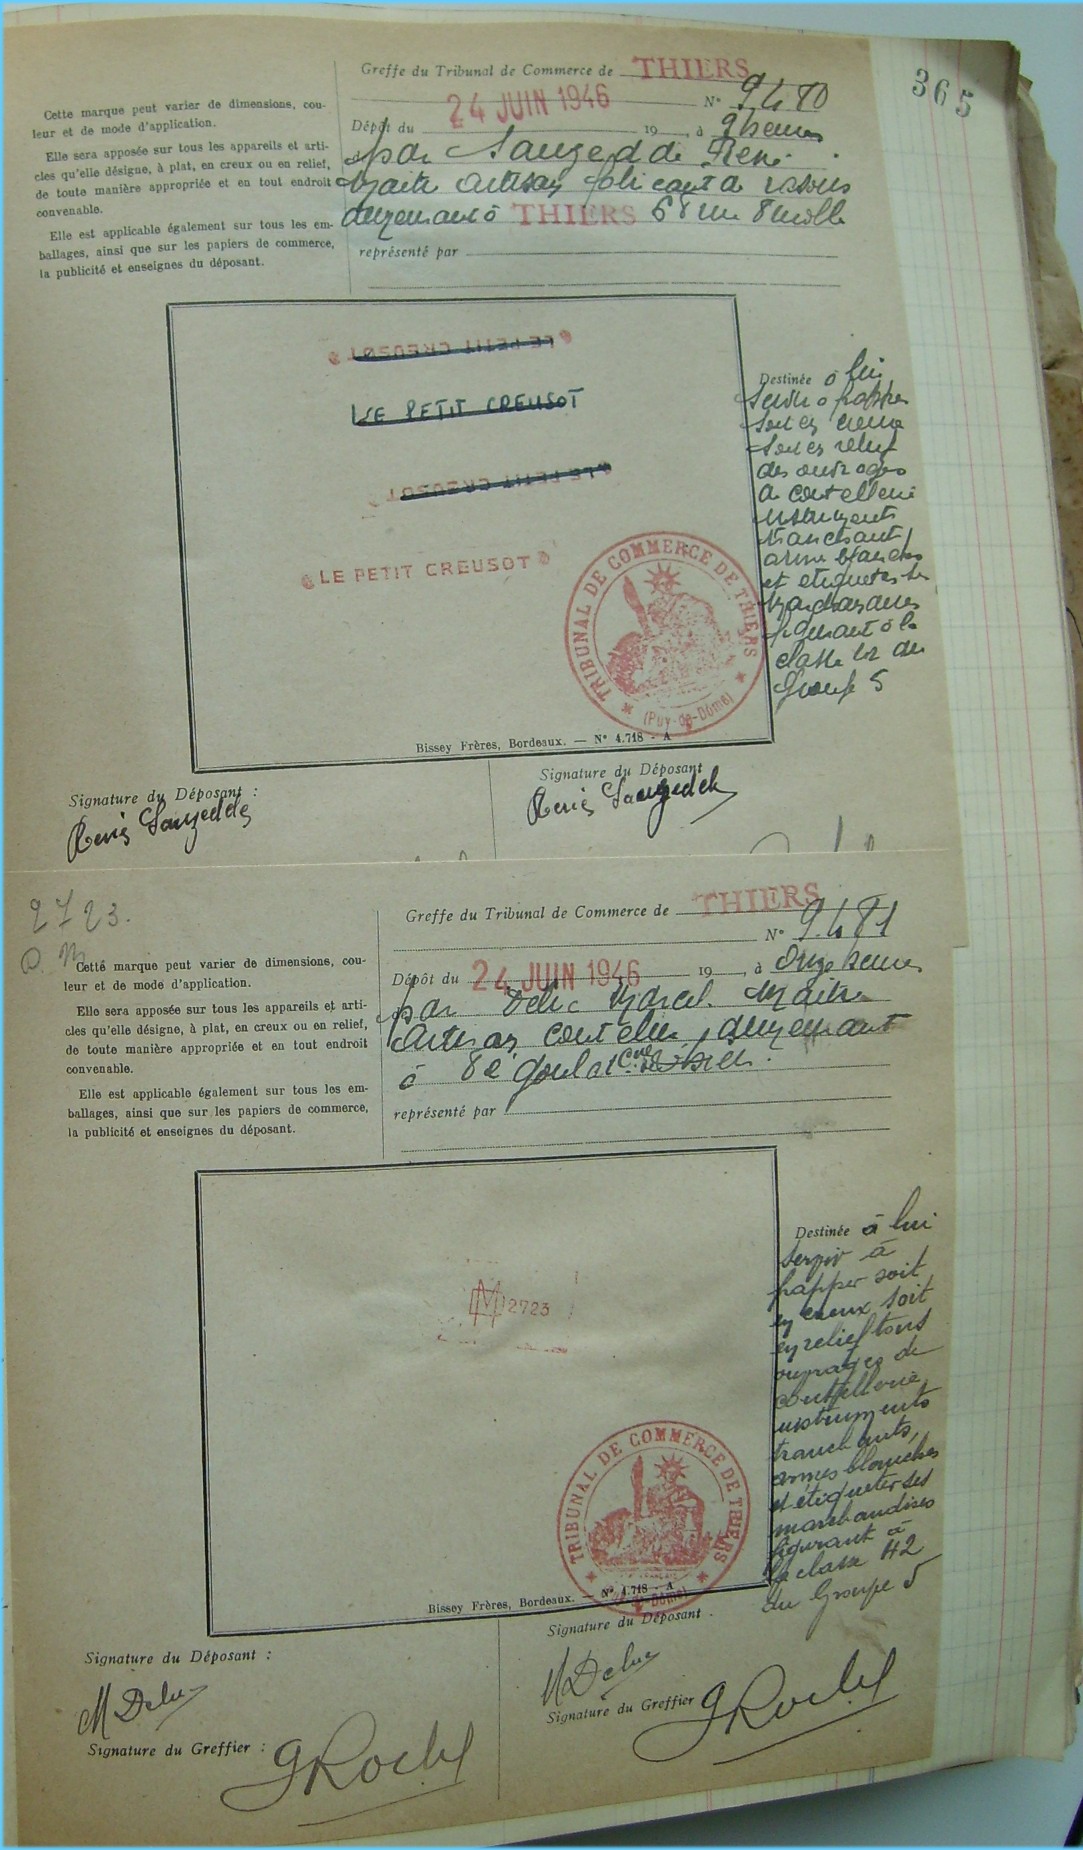 365
Greffe du Tribunal de Commerce de THIERS
N° 9480
Dépôt du 24 JUIN 1946 19 , à 9 heures
par Sauzedde René
Maitre artisan fabricant de rasoirs
demeurant à THIERS 68 rue
représenté par
Cette marque peut varier de dimensions, cou-
leur et de mode d'application.
Elle sera apposée sur tous les appareils et arti-
cles qu'elle désigne, à plat, en creux ou en relief,
de toute manière appropriée et en tout endroit
convenable.
Elle est applicable également sur tous les em-
ballages, ainsi que sur les papiers de commerce,
la publicité et enseignes du déposant.
LE PETIT CREUSOT
LE PETIT CREUSOT
LE PETIT CREUSOT
LE PETIT CREUSOT
TRIBUNAL DE COMMERCE DE THIERS
(Puy-de-Dôme)
Bissey Frères, Bordeaux. — N° 4.718 - A
Destinée à lui
servir à frapper
soit en creux
soit en relief
des ouvrages
de coutellerie
instruments
tranchants
armes blanches
et etiqueter ses
marchandises
figurant à la
classe 42 du
Groupe 5
Signature du Déposant :
René Sauzedde
Signature du Déposant
René Sauzedde
2723.
D. M
Greffe du Tribunal de Commerce de THIERS
N° 9481
Dépôt du 24 JUIN 1946 19 , à Onze heures
par Marcel Maitre
Artisan coutelier, demeurant
à
représenté par
Cette marque peut varier de dimensions, cou-
leur et de mode d'application.
Elle sera apposée sur tous les appareils et arti-
cles qu'elle désigne, à plat, en creux ou en relief,
de toute manière appropriée et en tout endroit
convenable.
Elle est applicable également sur tous les em-
ballages, ainsi que sur les papiers de commerce,
la publicité et enseignes du déposant.
2723
TRIBUNAL DE COMMERCE DE THIERS
Bissey Frères, Bordeaux. — N° 4.718 - A
Destinée à lui
servir à
frapper soit
en creux soit
en relief tous
ouvrages de
coutellerie
instruments
tranchants,
armes blanches
et étiqueter ses
marchandises
figurant à
la classe 42
du Groupe 5
Signature du Déposant :
Signature du Déposant .
Signature du Greffier :
Signature du Greffier